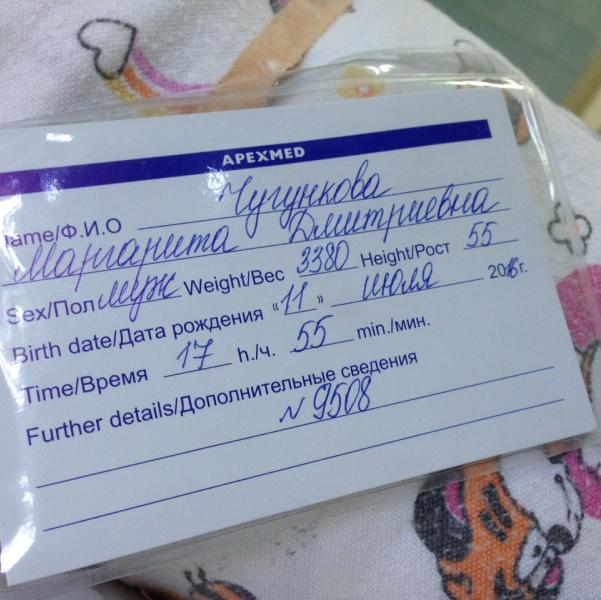 APEXMED
Name/Ф.И.О Чугункова
Маргарита Дмитриевна
Sex/Пол муж Weight/Вес 3380 Height/Рост 55
Birth date/Дата рождения «11» июля 2016г.
Time/Время 17 h./ч. 55 min./мин.
Further details/Дополнительные сведения
N 9508